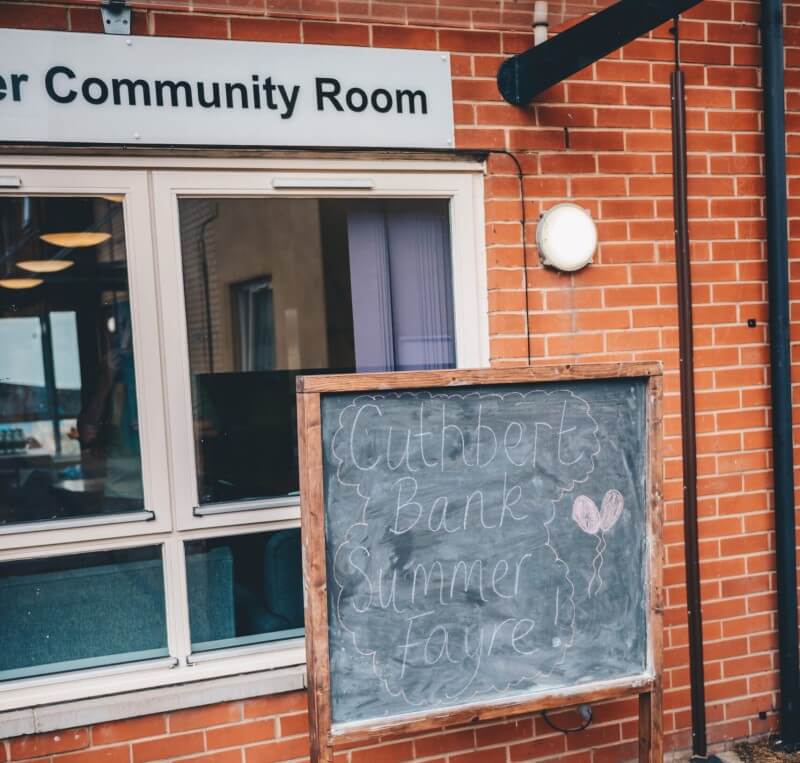 Community Room
Cuthbert
Bank
Summer
Fayre!